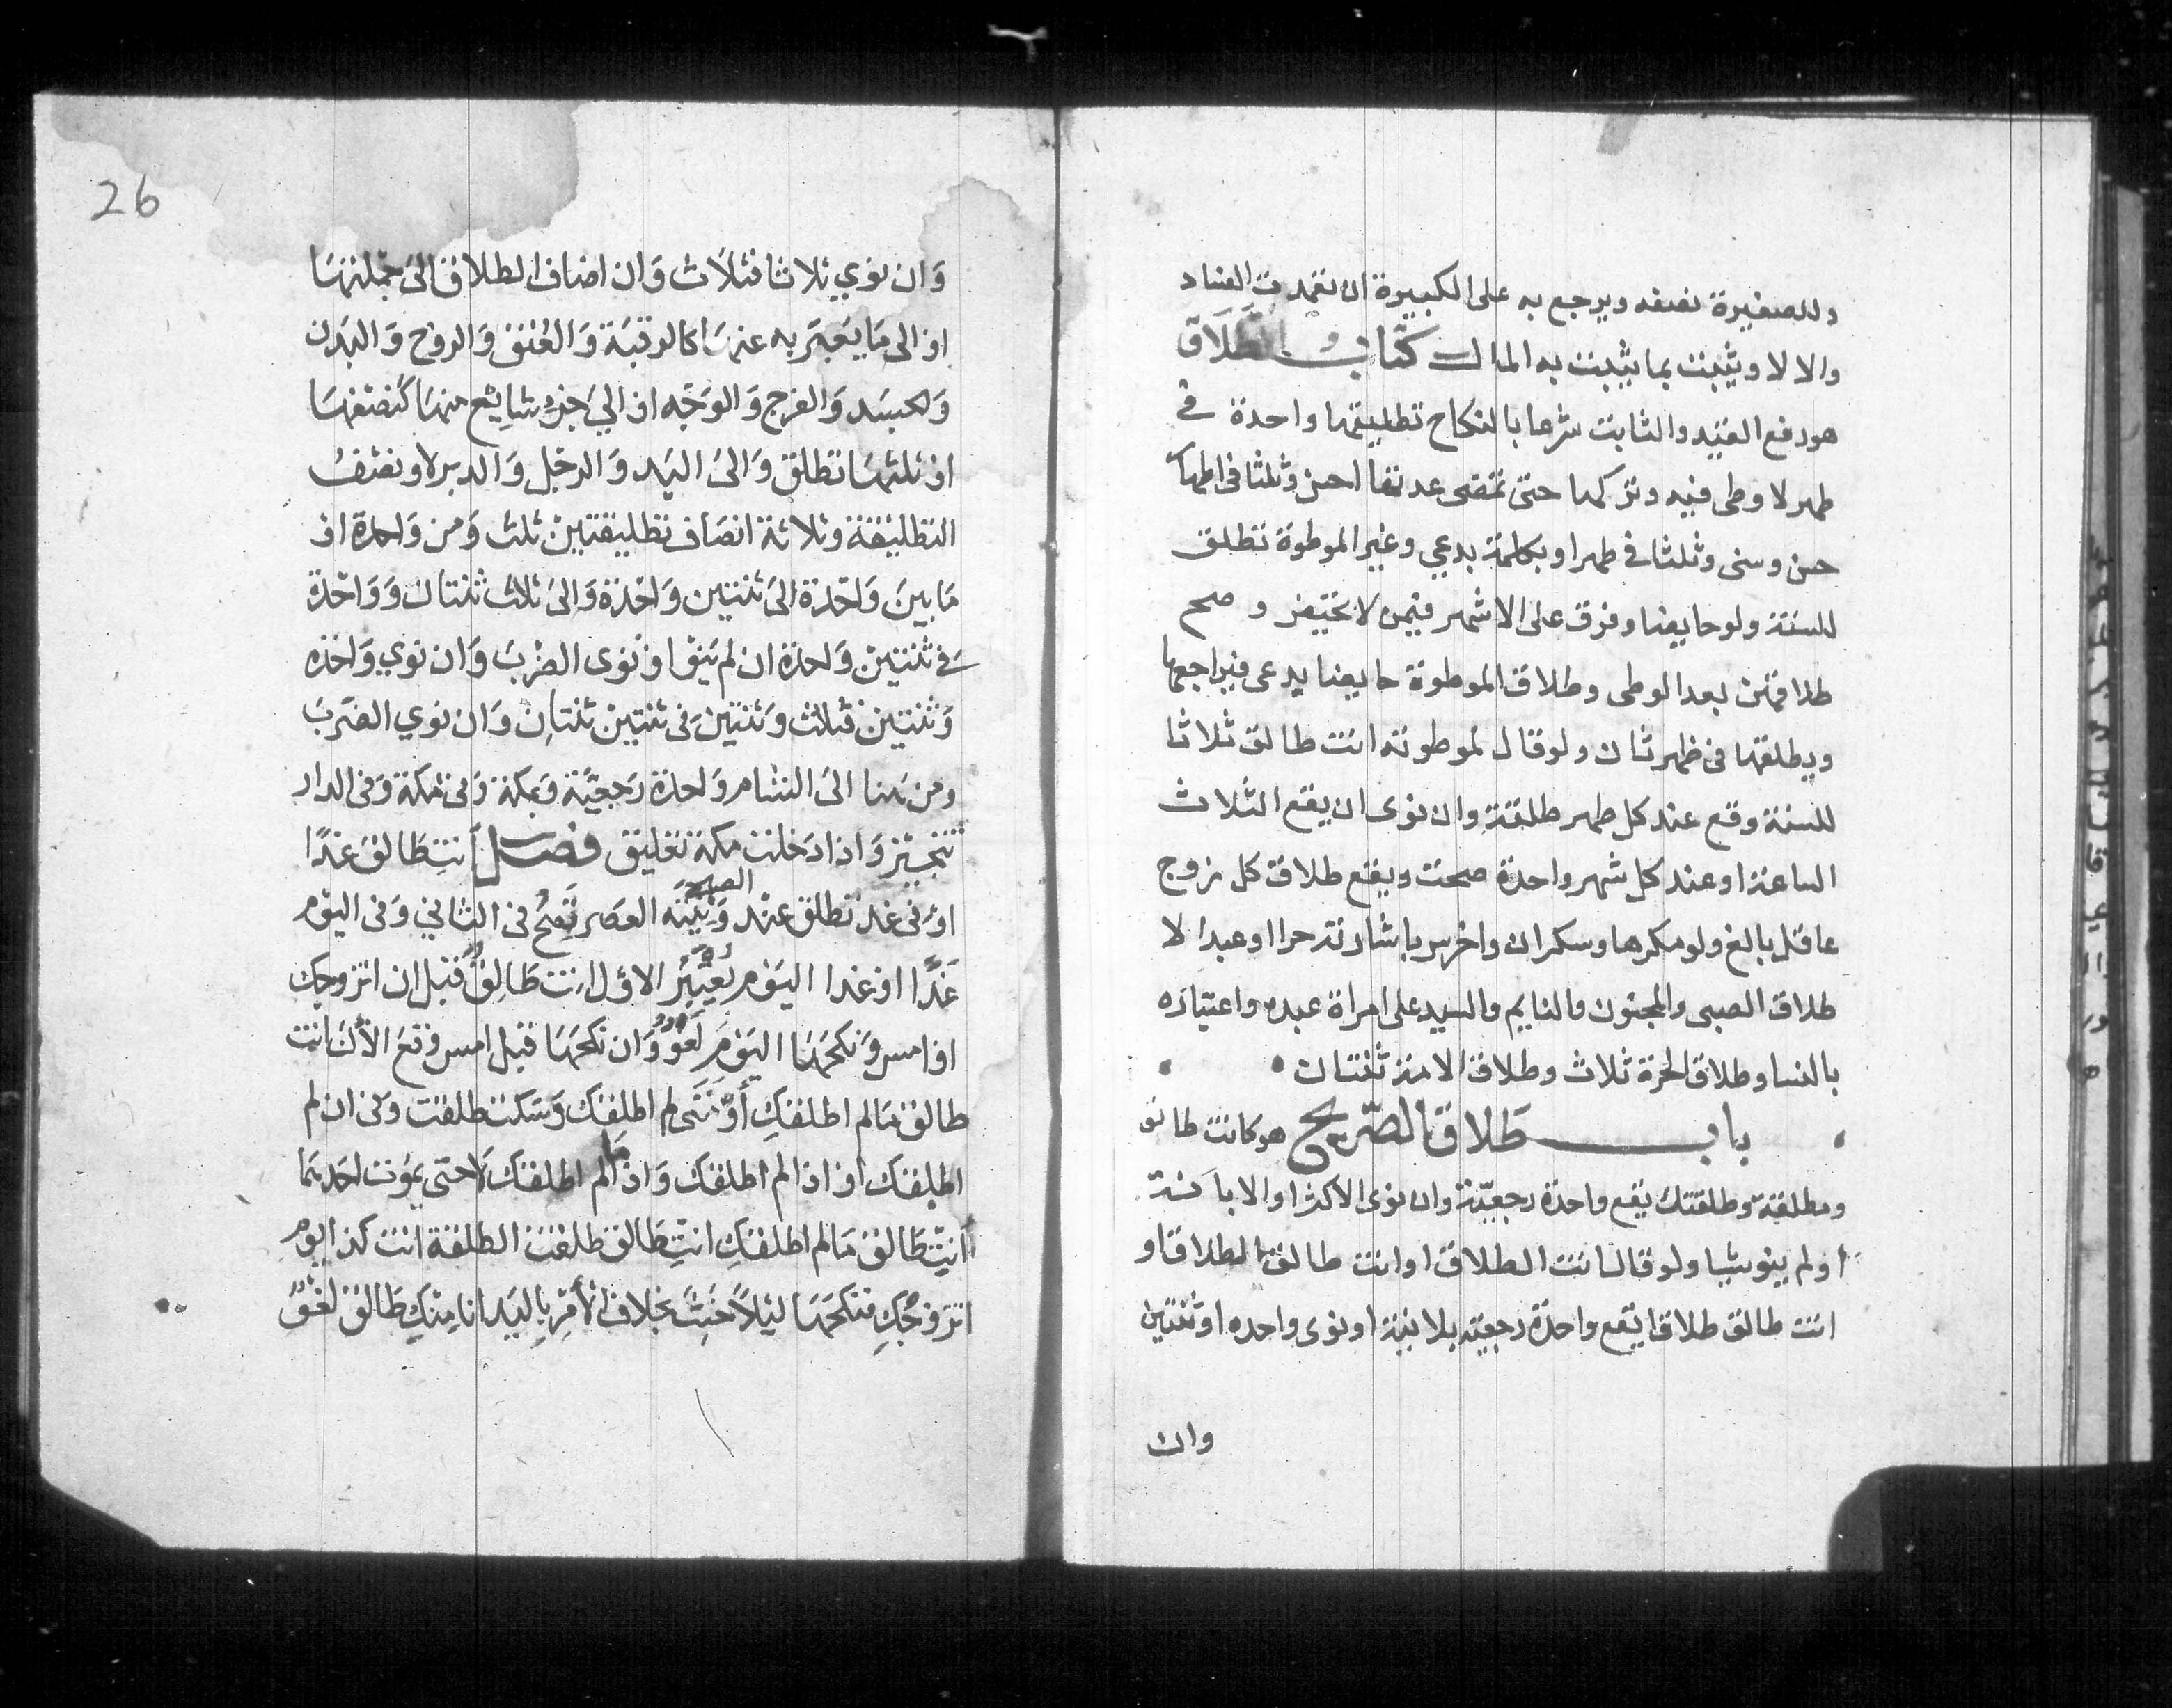 وللصغيرة نصفه ويرجع به على الكبيرة ان تعمدت الفساد
والا لا ويثبت بما يثبت به المال كتاب الطلاق
هو رفع القيد والثابت شرعا بالنكاح تطليقها واحدة في
طهر لا وطى فيه وتركها حتى تمضى عدتها احسن وثلثا فى اطهار
حسن وسنى وثلثا في طهر او بكلمة بدعي وغير الموطوة تطلق
للسنة ولو حايضا وفرق على الاشهر فيمن لا تحيض وصح
طلاقهن بعد الوطى وطلاق الموطوة حايضا بدعى فيراجعها
ويطلقها فى طهر ثان ولو قال لموطوته انت طالق ثلاثا
للسنة وقع عند كل طهر طلقة وان نوى ان يقع الثلاث
الساعة او عند كل شهر واحدة صحت ويقع طلاق كل زوج
عاقل بالغ ولو مكرها وسكران واخرس باشارته حرا او عبدا لا
طلاق الصبى والمجنون والنايم والسيد على امراة عبده واعتباره
بالنسا وطلاق الحرة ثلاث وطلاق الامة ثنتان
باب طلاق الصريح هو كانت طالق
ومطلقة وطلقتك يقع واحدة رجعية وان نوى الاكثر او الابانة
او لم ينو شيا ولو قال انت الطلاق او انت طالق الطلاق او
انت طالق طلاقا يقع واحدة رجعية بلا نية او نوى واحده او ثنتين
وان
26
وَان نوي ثلاثا فثلَاث وَان اضاف الطلاق الىَ جملتهَا
او الى مَا يُعَبَّر به عنهَا كالرقبَة وَالعُنق وَالروح وَالبَدن
وَالجسَد وَالفرج وَالوَجْه او اليَ جزءٍ شايع منهَا كنصفهَا
او ثلثهَا تطلق وَالىَ اليَد وَالرجْل وَالدبر لا ونصْفُ
التطليقة وثلاثة انصَاف تطليقتين ثلث وَمن وَاحدة او
مَا بينَ وَاحدة الىَ ثنتين وَاحدة وَالىَ ثلث ثنتان وَوَاحدة
في ثنتين وَاحدة ان لم يَنو او نوى الضرْبَ وَان نوي وَاحدة
وَثنتين فثلاث وَثنتين فى ثنتين ثنتان وَان نوي الضرْبَ
ومن هَنا الىَ الشام وَاحدة رَجعيَّة وَبمكة وَفى مكة وَفى الدار
تنجيز وَاذا دَخلت مكة تعليق فصل انتِ طَالق غدًا
او فى غد تطلق عند الصبح وَنيَّته العصر تصحُ فى الثاني وَفى اليوم
غدًا او غدا اليوم يُعتبَر الاول انت طَالق قبل ان اتزوجك
او امس وَنكحَهَا اليوم لَغو وَان نكحَهَا قبل امس وَقعَ الآن انت
طالق مَا لم اطلقك أو متَى لم اطلقك وَسَكت طلقت وفى ان لم
اطلقك او اذا لم اطلقك وَاذا مَا لم اطلقك لَا حتى يموت احَدهمَا
انتِ طَالق مَا لم اطلقكِ انتِ طَالق طلقت الطلقة انت كذا يوم
اتزوجكِ فنكحَهَا ليْلاً حَنِث بخلاف الأمْرِ بِاليَد انا منكِ طَالق لَغوٌ